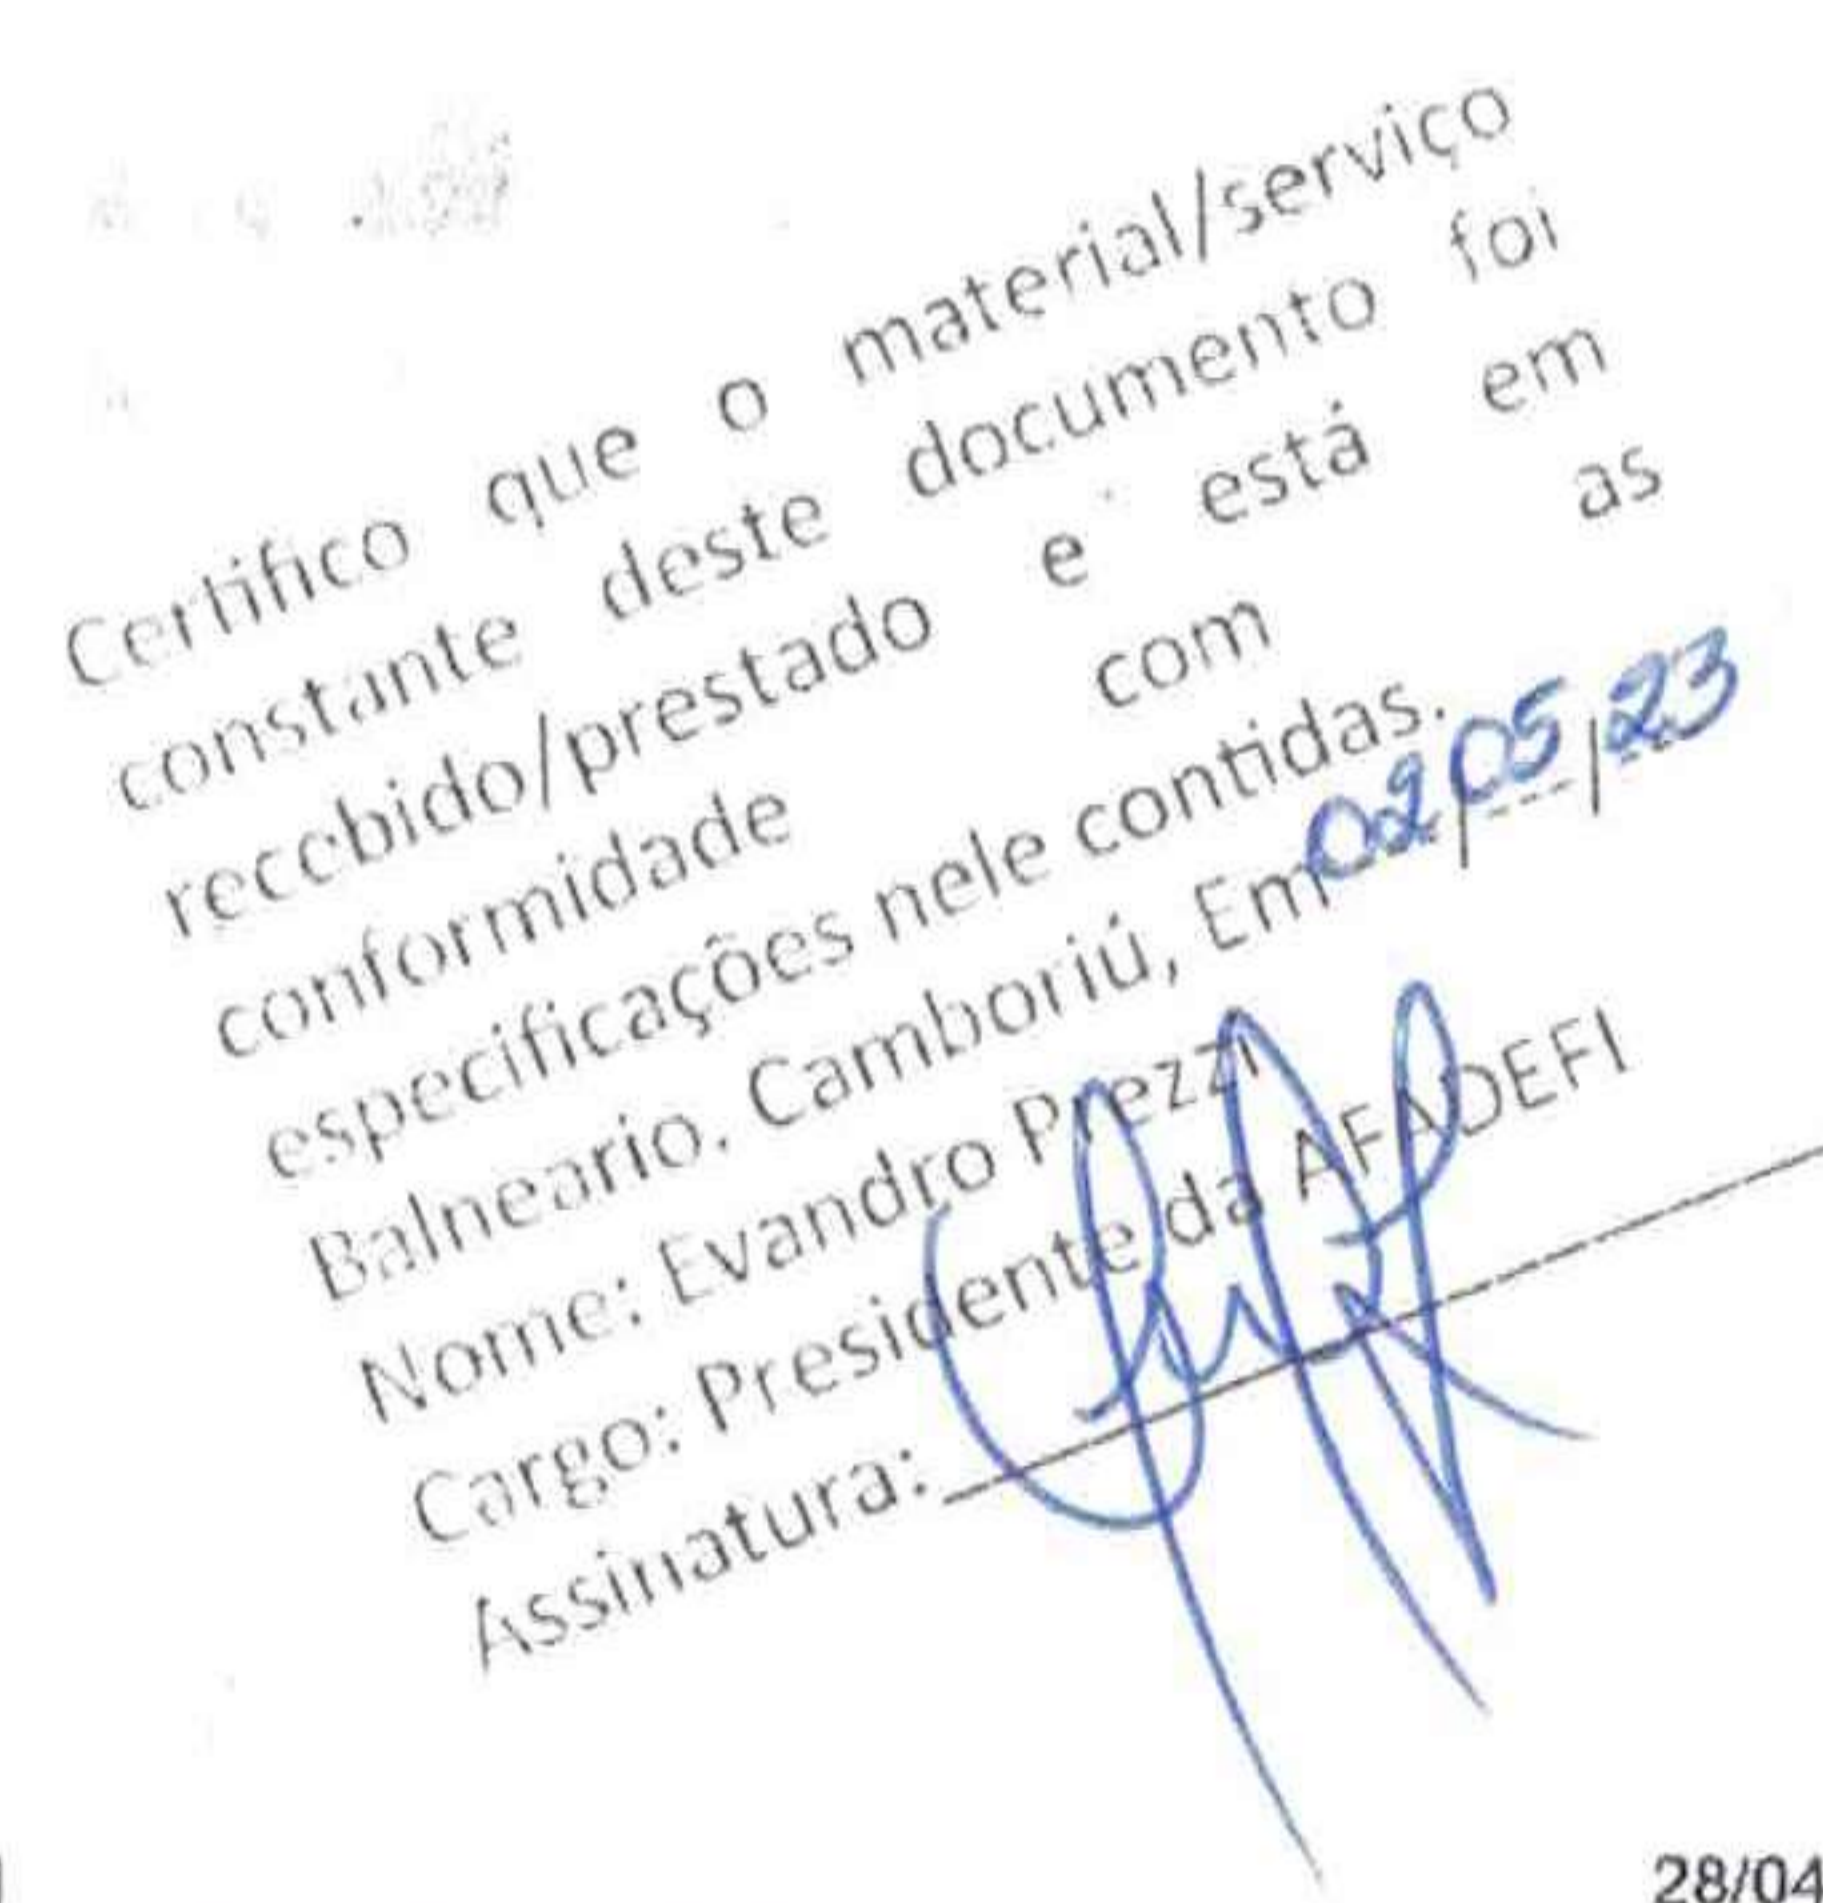 Certifico que o material/serviço
constante deste documento foi
recebido/prestado e está em
conformidade com as
especificações nele contidas.
Balneario. Camboriú, Em 02/05/23
Nome: Evandro Prezzi
Cargo: Presidente da AFADEFI
Assinatura:
28/04